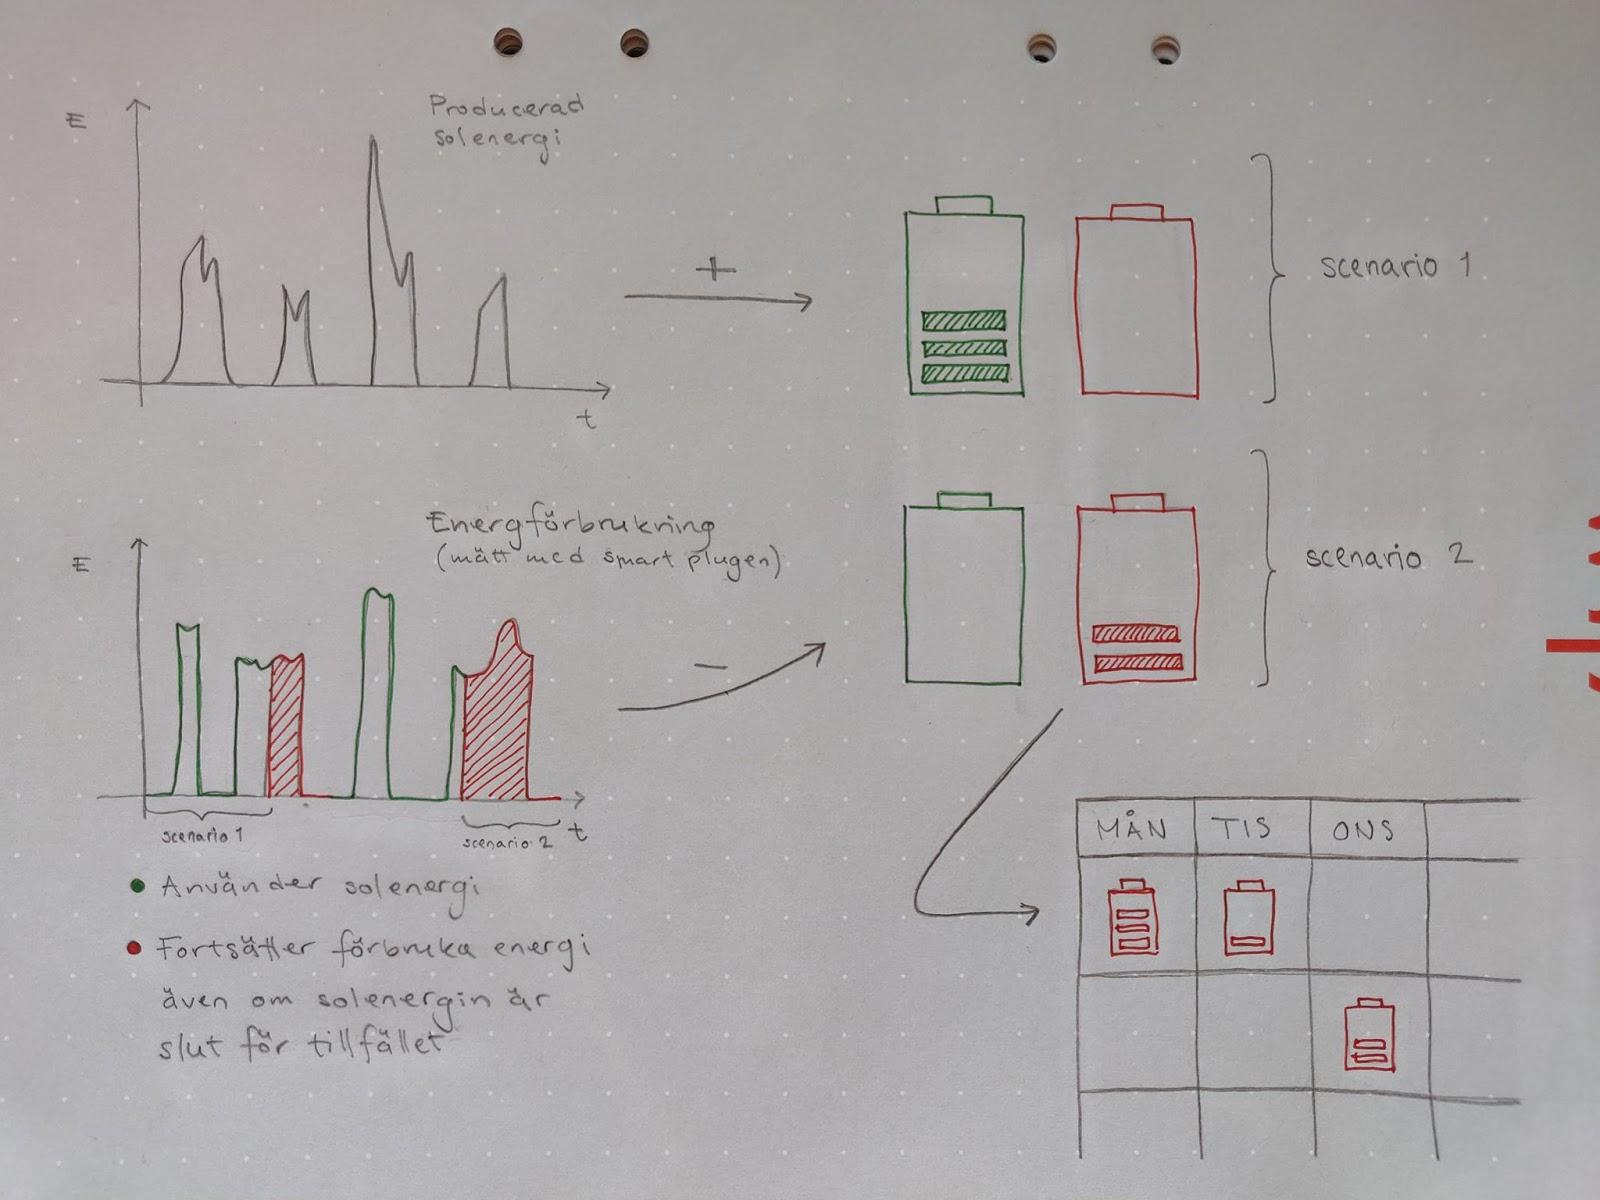 E
Producerad
solenergi
+
t
scenario 1
E
Energförbrukning
(mätt med smart plugen)
–
scenario 1
scenario 2
t
scenario 2
• Använder solenergi
• Fortsätter förbruka energi
även om solenergin är
slut för tillfället
MÅN TIS ONS